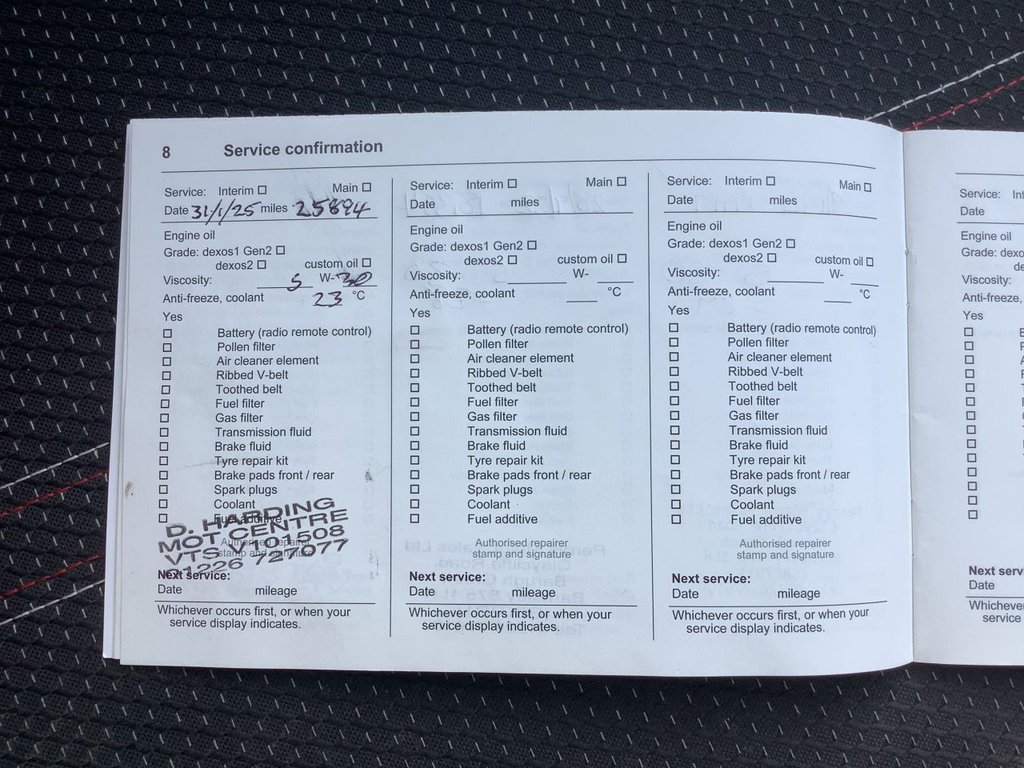 8 Service confirmation
Service: Interim ☐ Main ☐
Date 31/1/25 miles 25894
Engine oil
Grade: dexos1 Gen2 ☐
dexos2 ☐ custom oil ☐
Viscosity: 5 W-30
Anti-freeze, coolant 23 °C
Yes
☐ Battery (radio remote control)
☐ Pollen filter
☐ Air cleaner element
☐ Ribbed V-belt
☐ Toothed belt
☐ Fuel filter
☐ Gas filter
☐ Transmission fluid
☐ Brake fluid
☐ Tyre repair kit
☐ Brake pads front / rear
☐ Spark plugs
☐ Coolant
☐ Fuel additive
Authorised repairer
stamp and signature
D. HARDING
MOT CENTRE
VTS
01226 727077
Next service:
Date mileage
Whichever occurs first, or when your
service display indicates.
Service: Interim ☐ Main ☐
Date miles
Engine oil
Grade: dexos1 Gen2 ☐
dexos2 ☐ custom oil ☐
Viscosity: W-
Anti-freeze, coolant °C
Yes
☐ Battery (radio remote control)
☐ Pollen filter
☐ Air cleaner element
☐ Ribbed V-belt
☐ Toothed belt
☐ Fuel filter
☐ Gas filter
☐ Transmission fluid
☐ Brake fluid
☐ Tyre repair kit
☐ Brake pads front / rear
☐ Spark plugs
☐ Coolant
☐ Fuel additive
Authorised repairer
stamp and signature
Next service:
Date mileage
Whichever occurs first, or when your
service display indicates.
Service: Interim ☐ Main ☐
Date miles
Engine oil
Grade: dexos1 Gen2 ☐
dexos2 ☐ custom oil ☐
Viscosity: W-
Anti-freeze, coolant °C
Yes
☐ Battery (radio remote control)
☐ Pollen filter
☐ Air cleaner element
☐ Ribbed V-belt
☐ Toothed belt
☐ Fuel filter
☐ Gas filter
☐ Transmission fluid
☐ Brake fluid
☐ Tyre repair kit
☐ Brake pads front / rear
☐ Spark plugs
☐ Coolant
☐ Fuel additive
Authorised repairer
stamp and signature
Next service:
Date mileage
Whichever occurs first, or when your
service display indicates.
Service:
Date
Engine oil
Grade:
Viscosity:
Anti-freeze,
Yes
Next serv
Date
Whichever
service